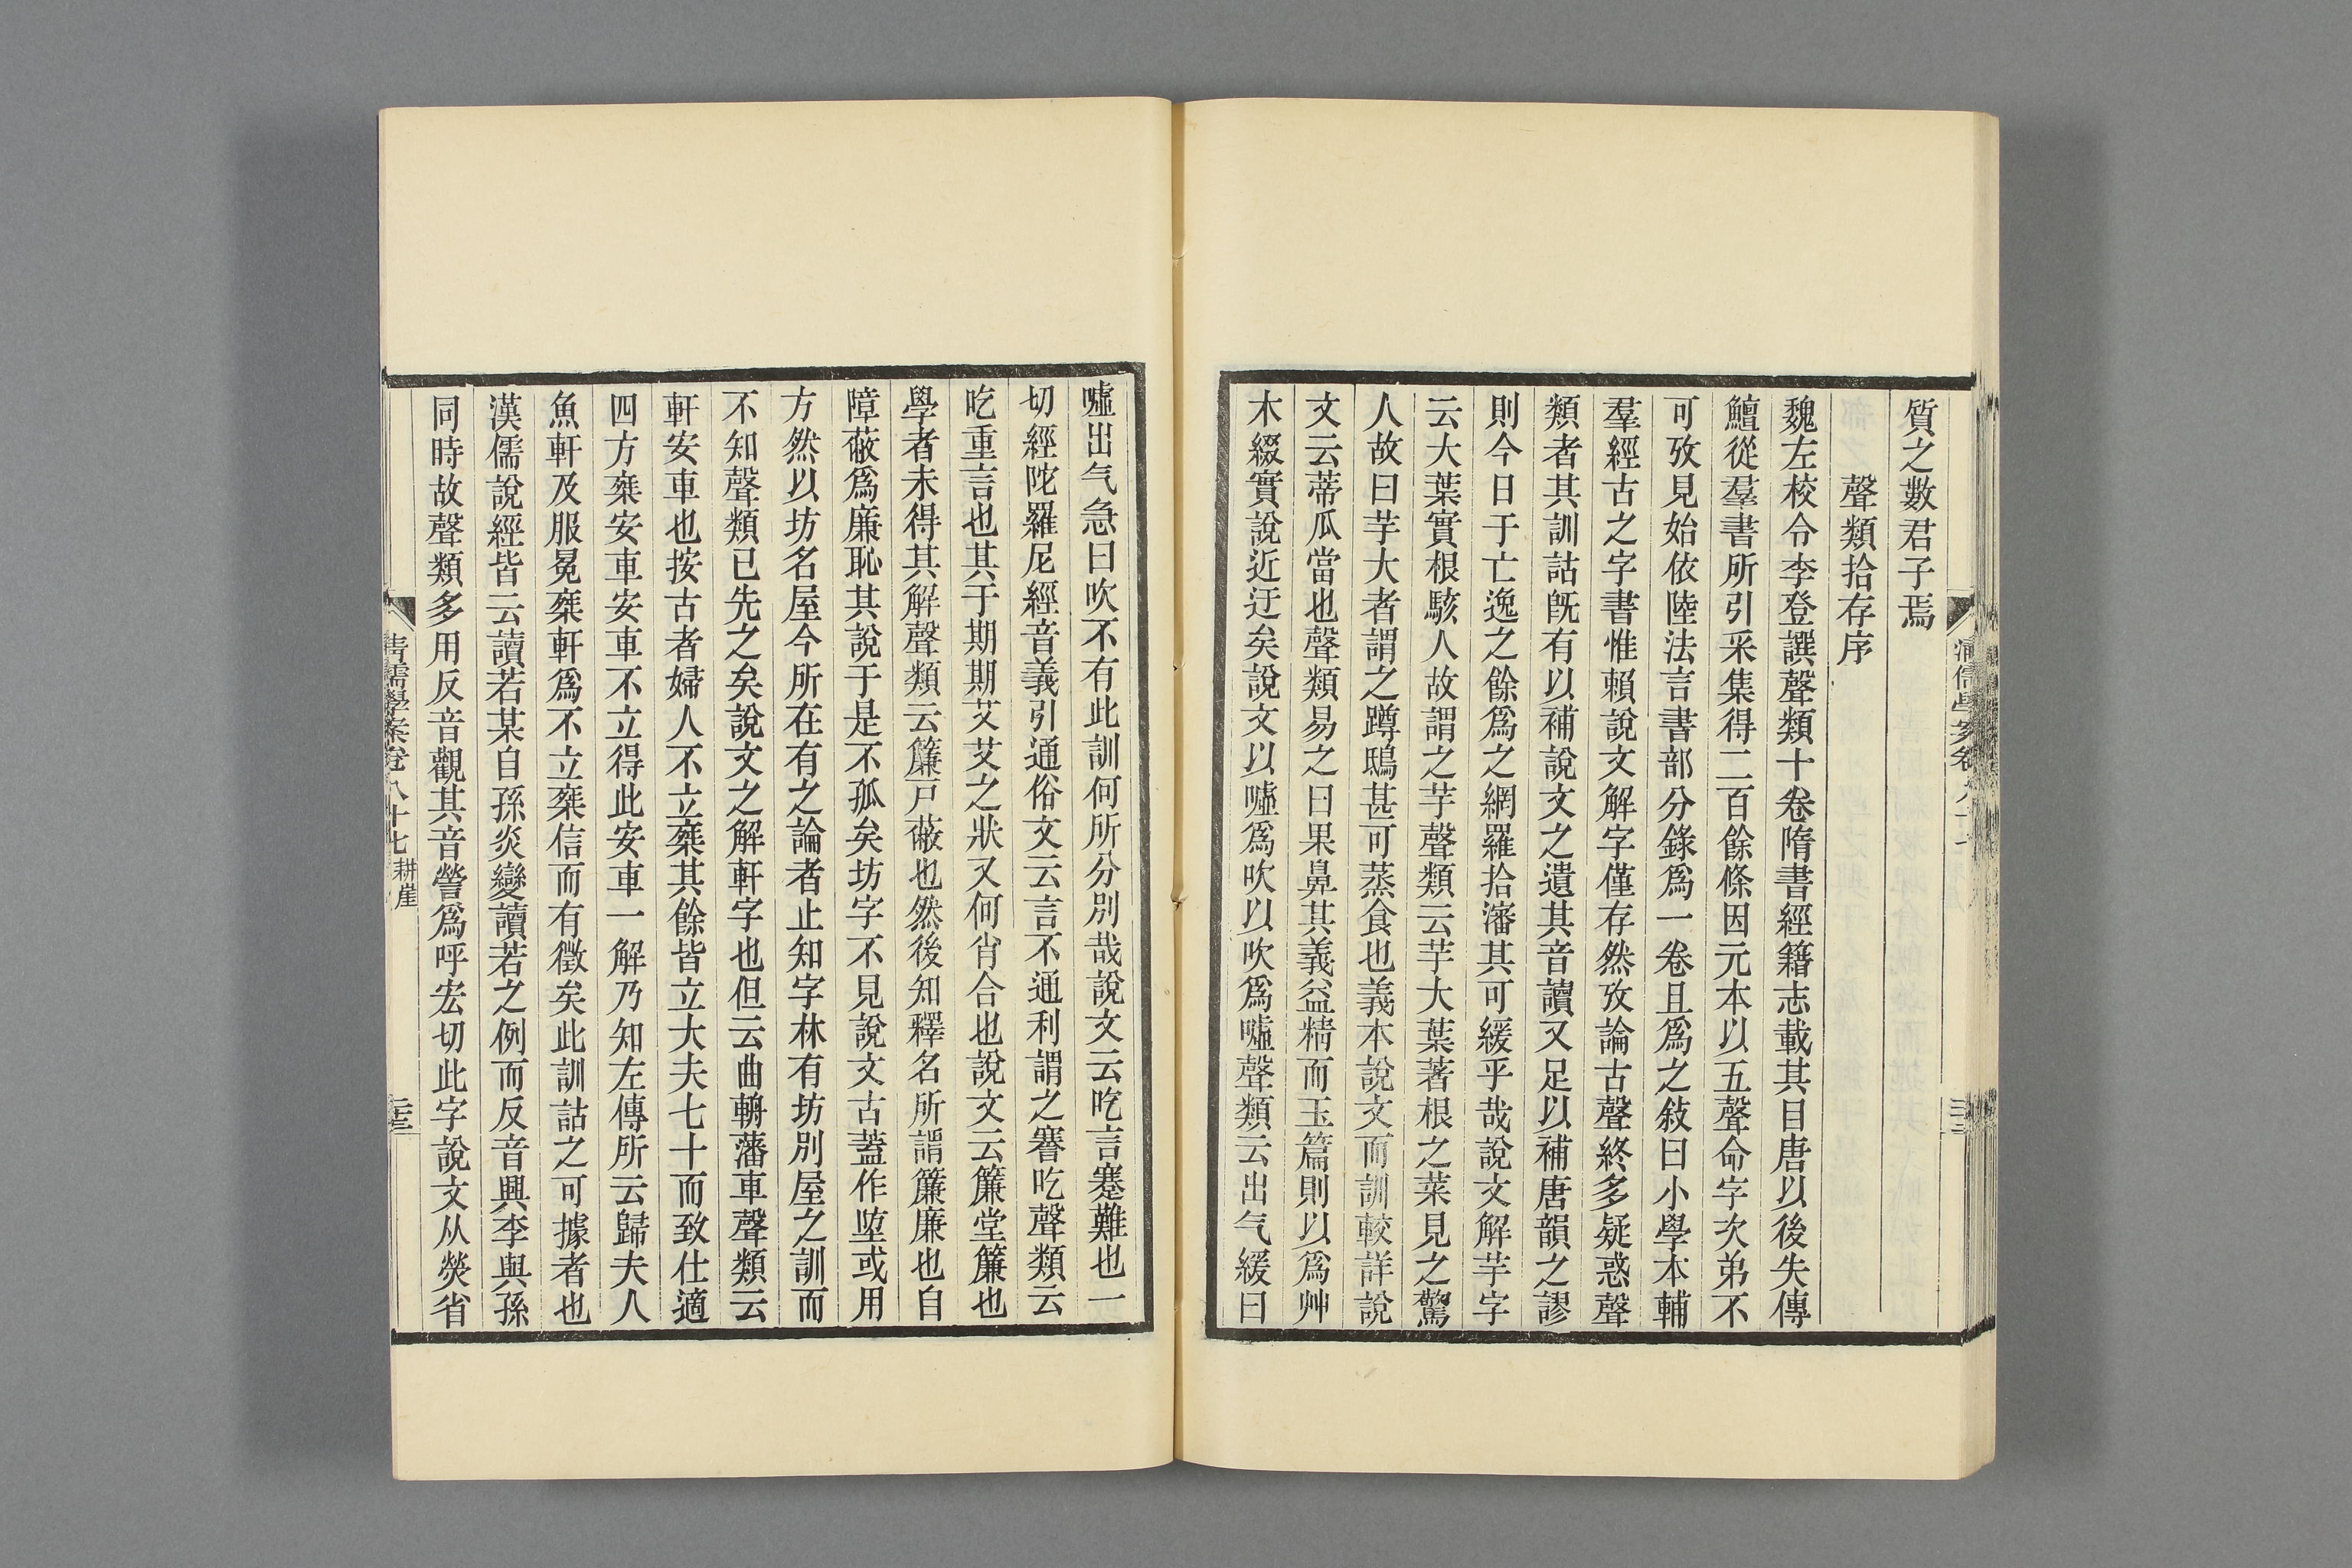 質之數君子焉
聲類拾存序
魏左校令李登譔聲類十卷隋書經籍志載其目唐以後失傳
鱣從羣書所引采集得二百餘條因元本以五聲命字次弟不
可攷見始依陸法言書部分錄爲一卷且爲之敍曰小學本輔
羣經古之字書惟賴說文解字僅存然攷論古聲終多疑惑聲
類者其訓詁旣有以補說文之遺其音讀又足以補唐韻之謬
則今日于亡逸之餘爲之網羅拾瀋其可緩乎哉說文解芋字
云大葉實根駭人故謂之芋聲類云芋大葉著根之菜見之驚
人故曰芋大者謂之蹲鴟甚可蒸食也義本說文而訓較詳說
文云蒂瓜當也聲類易之曰果鼻其義益精而玉篇則以爲艸
木綴實說近迂矣說文以噓爲吹以吹爲噓聲類云出气緩曰
噓出气急曰吹不有此訓何所分別哉說文云吃言蹇難也一
切經陀羅尼經音義引通俗文云言不通利謂之謇吃聲類云
吃重言也其于期期艾艾之狀又何肖合也說文云簾堂簾也
學者未得其解聲類云簾戶蔽也然後知釋名所謂簾廉也自
障蔽爲廉恥其說于是不孤矣坊字不見說文古蓋作埅或用
方然以坊名屋今所在有之論者止知字林有坊別屋之訓而
不知聲類已先之矣說文之解軒字也但云曲輈藩車聲類云
軒安車也按古者婦人不立椉其餘皆立大夫七十而致仕適
四方椉安車安車不立得此安車一解乃知左傳所云歸夫人
魚軒及服冕椉軒爲不立椉信而有徵矣此訓詁之可據者也
漢儒說經皆云讀若某自孫炎變讀若之例而反音興李與孫
同時故聲類多用反音觀其音謍爲呼宏切此字說文从熒省
清儒學案卷八十七 耕崖
三三